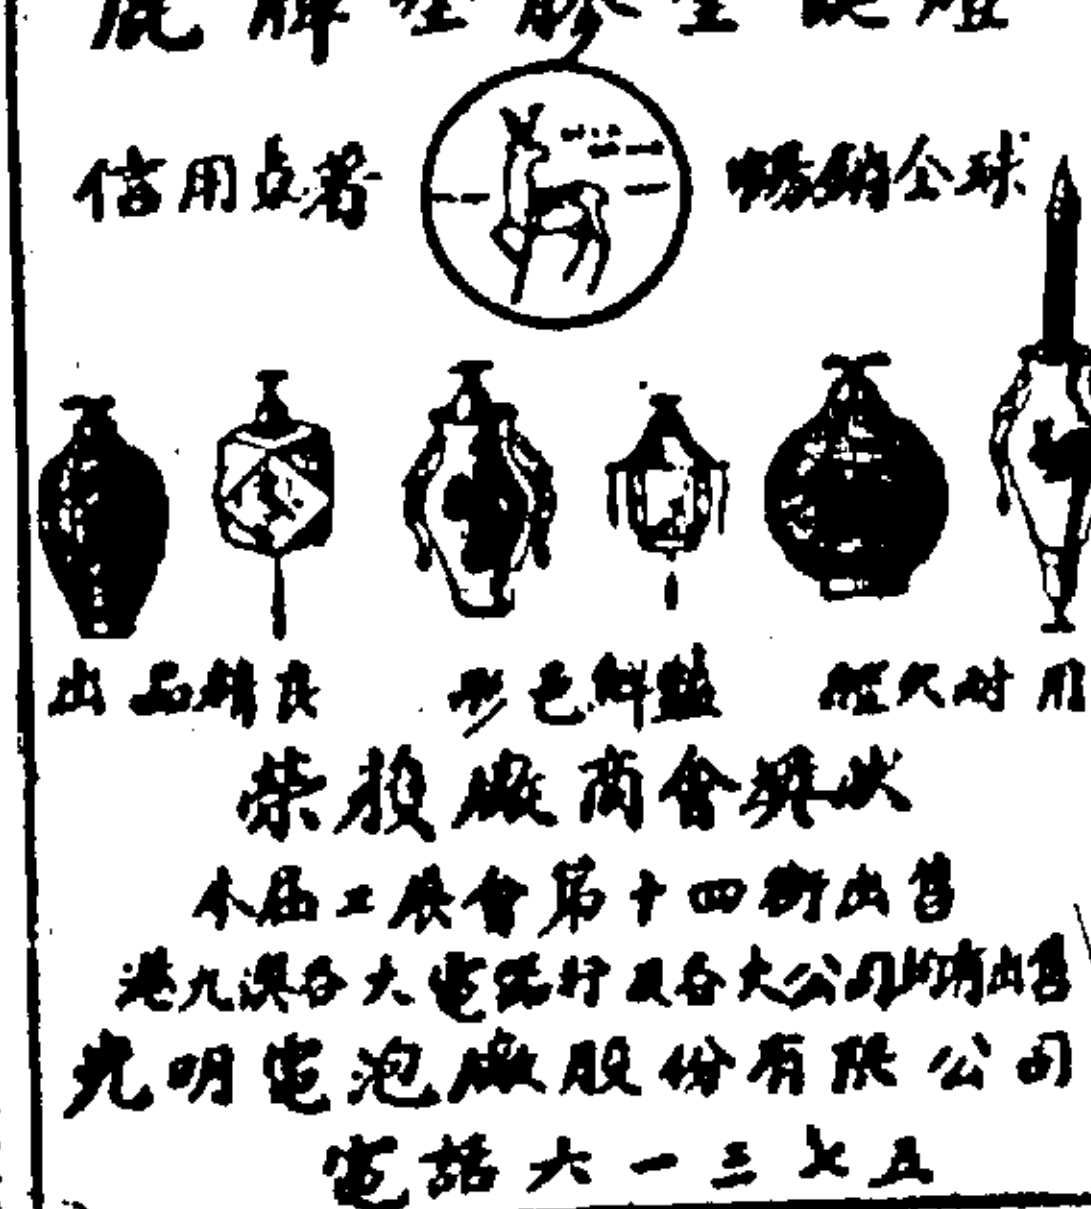 鹿牌塑膠聖誕燈
信用卓著 暢銷全球
出品精良 形色鮮豔 經久耐用
榮獲廠商會獎狀
本屆工展會第十四街出售
港九澳各大電器行及各大公司均有出售
光明電泡廠股份有限公司
電話六一三七五